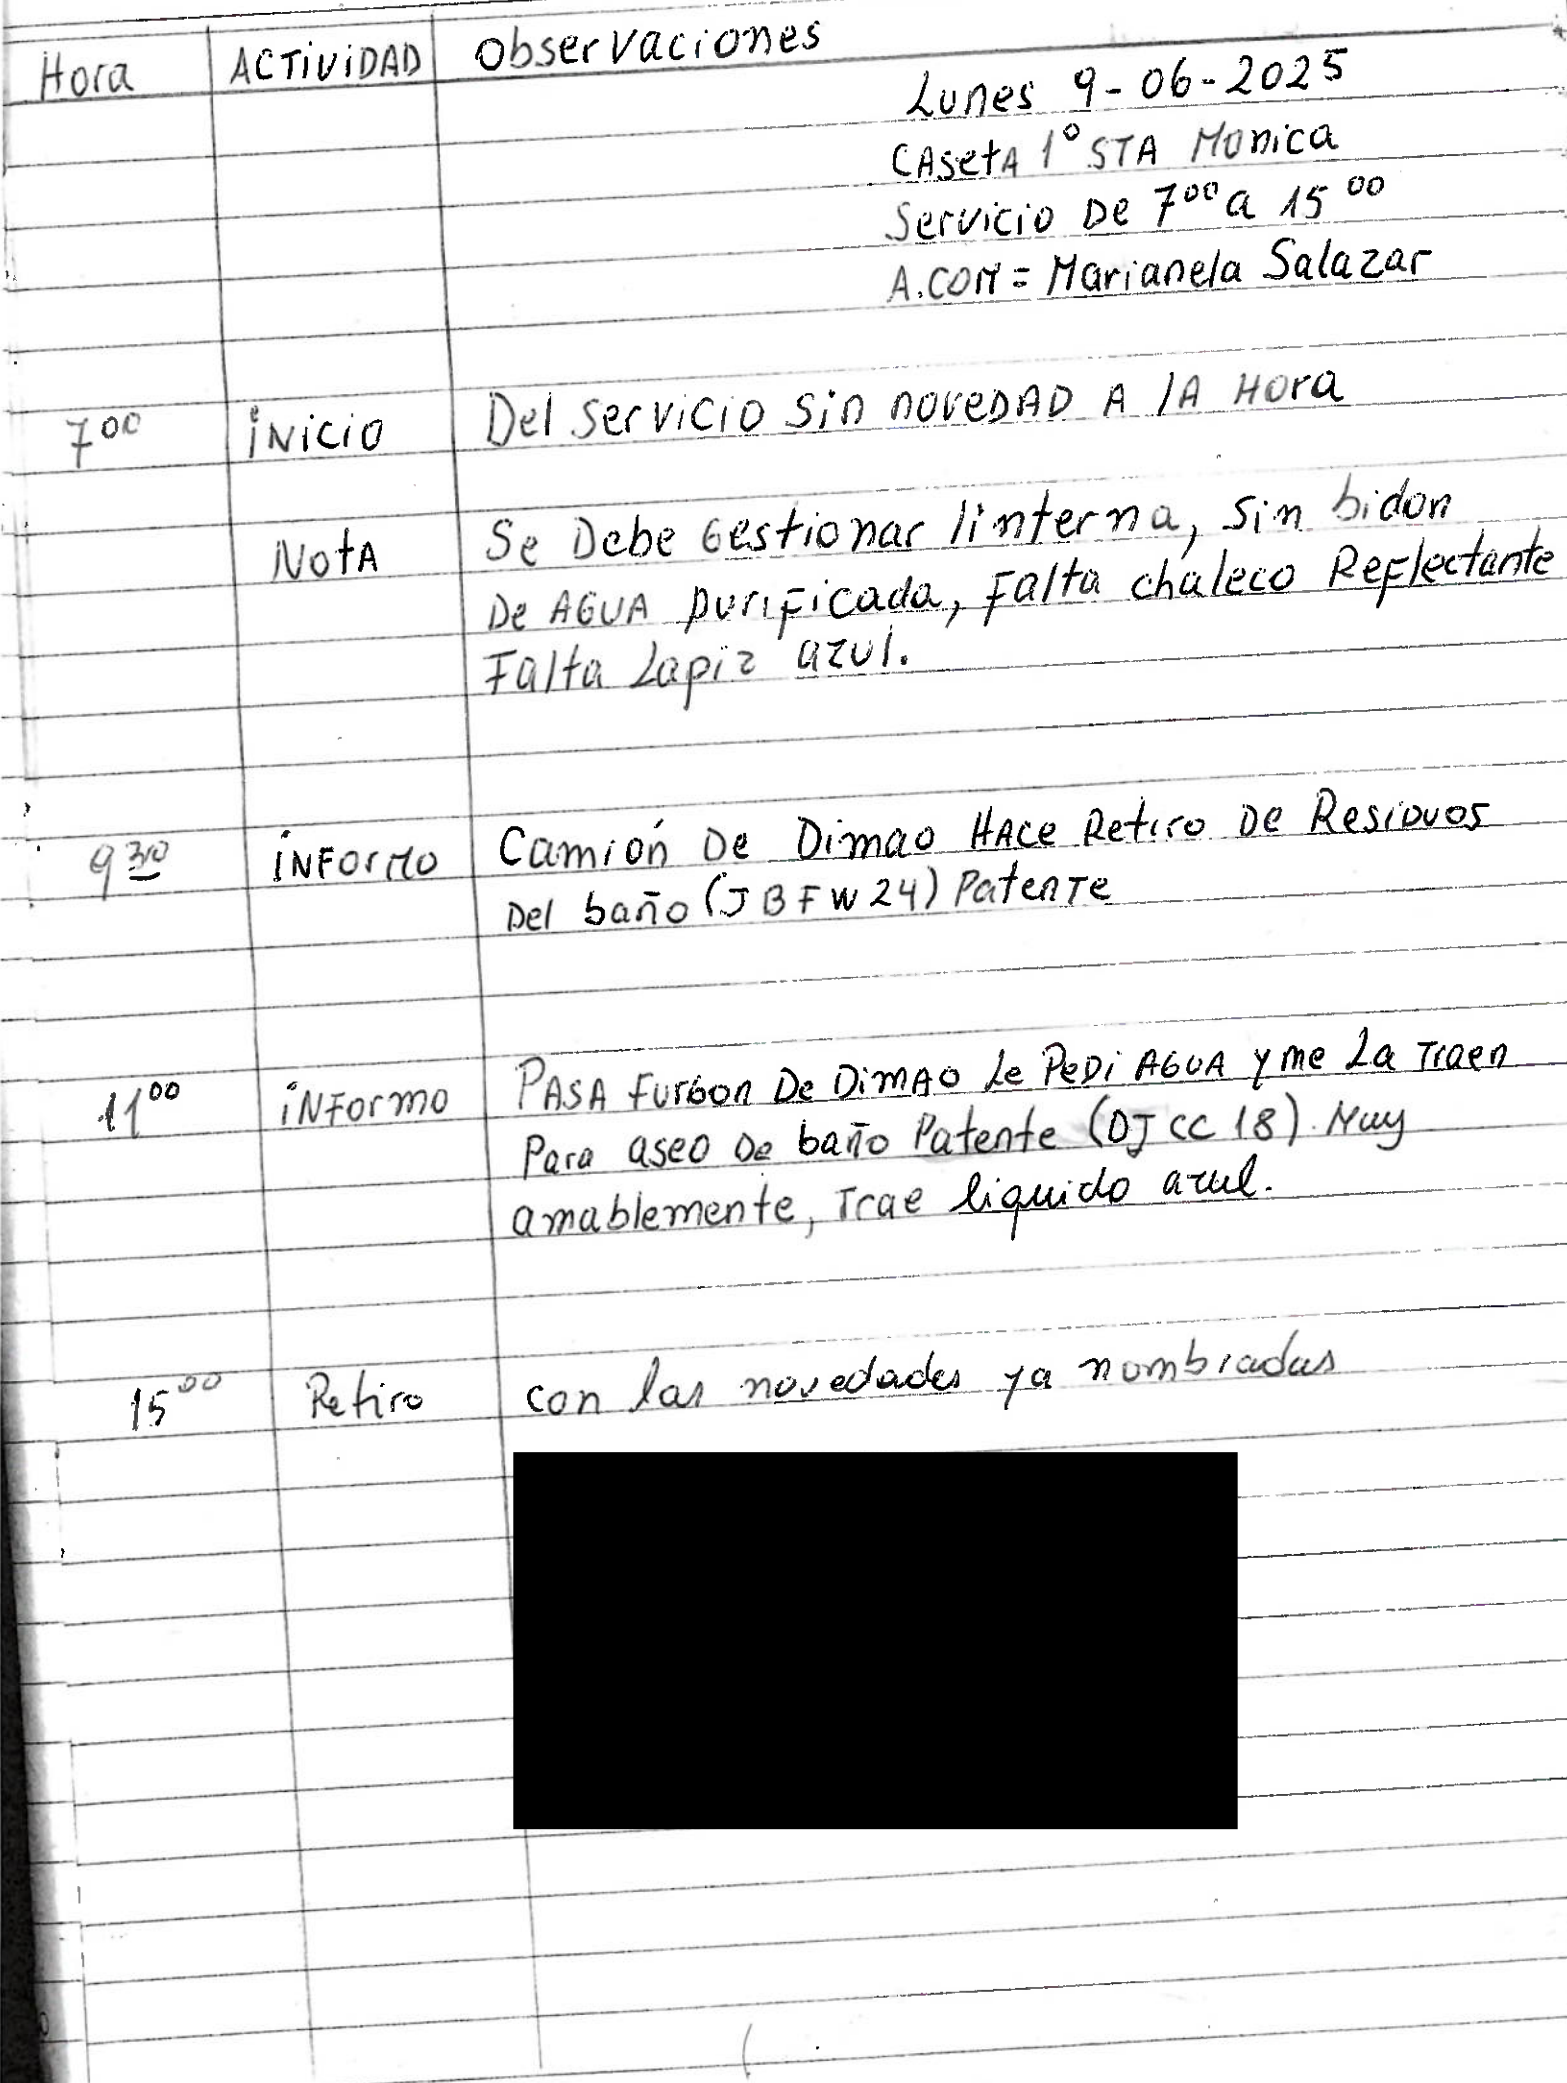 Hora ACTIVIDAD Observaciones
Lunes 9-06-2025
CAsetA 1° STA Monica
Servicio De 7⁰⁰ a 15⁰⁰
A.COM = Marianela Salazar
7⁰⁰ iNicio Del servicio Sin noveDAD A lA Hora
NotA Se Debe Gestionar linterna, Sin bidon
De AGUA purificada, Falta chaleco Reflectante
Falta Lapiz azul.
9³⁰ iNFormo Camión De Dimao HAce Retiro De Residuos
Del baño (JBFW24) Patente
11⁰⁰ iNFormo PASA Furgon De DimAO Le PeDi AGUA y me La Traen
Para aseo De baño Patente (DJCC18). Muy
amablemente, Trae liquido azul.
15⁰⁰ Retiro con las novedades ya nombradas